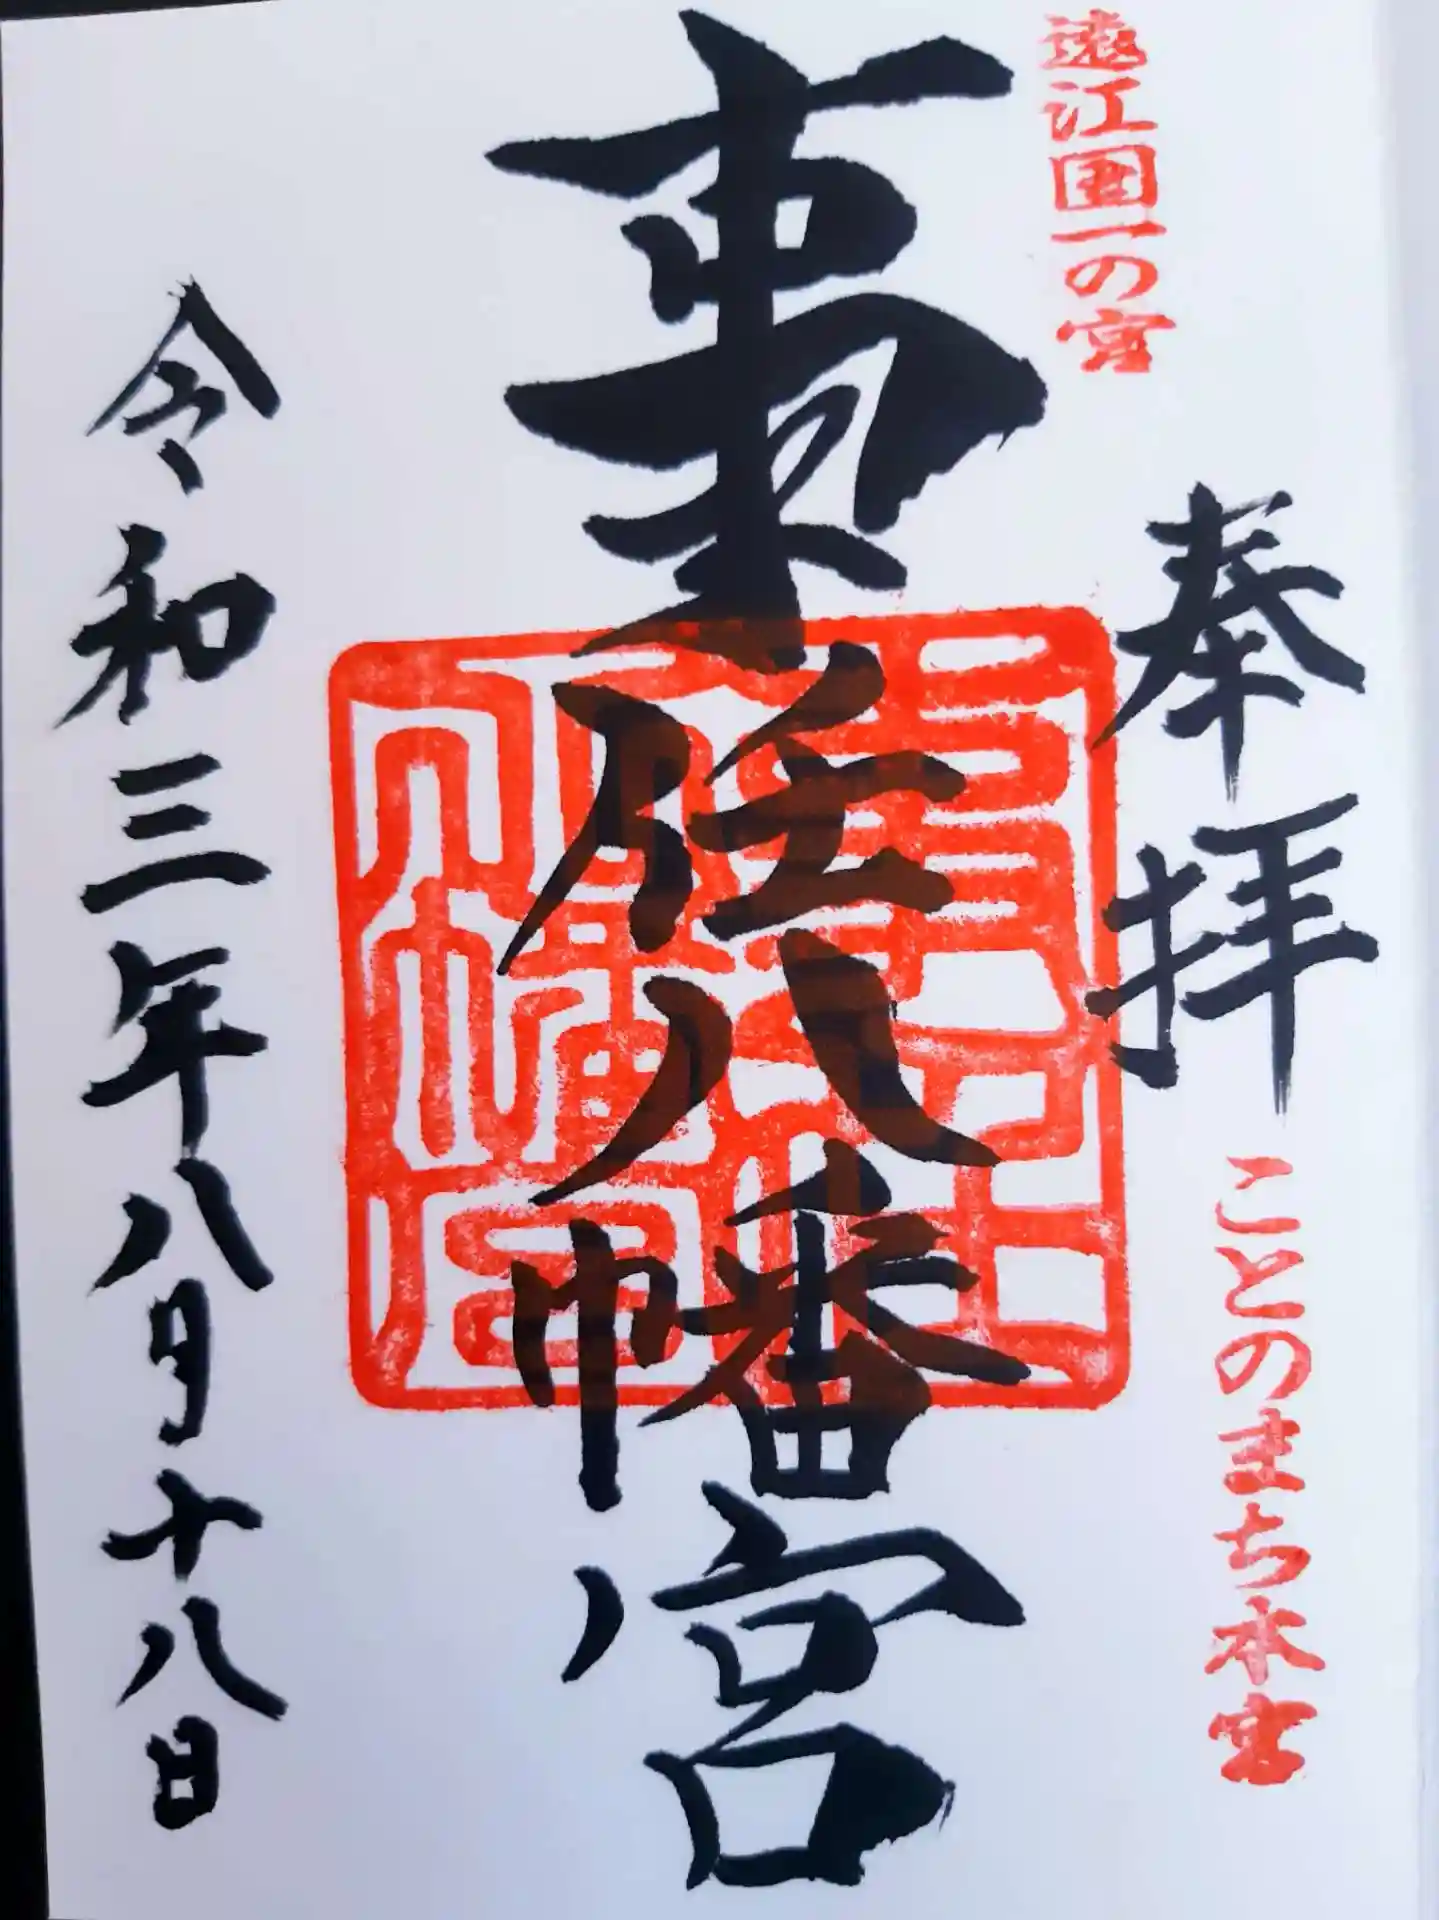 遠江国一の宮
奉拝
ことのまち本宮
事任八幡宮
事任八幡宮
令和三年八月十八日